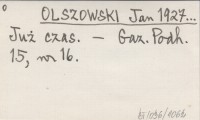 OLSZOWSKI Jan 1927...
Już czas. – Gaz. Podh.
15, nr 16.